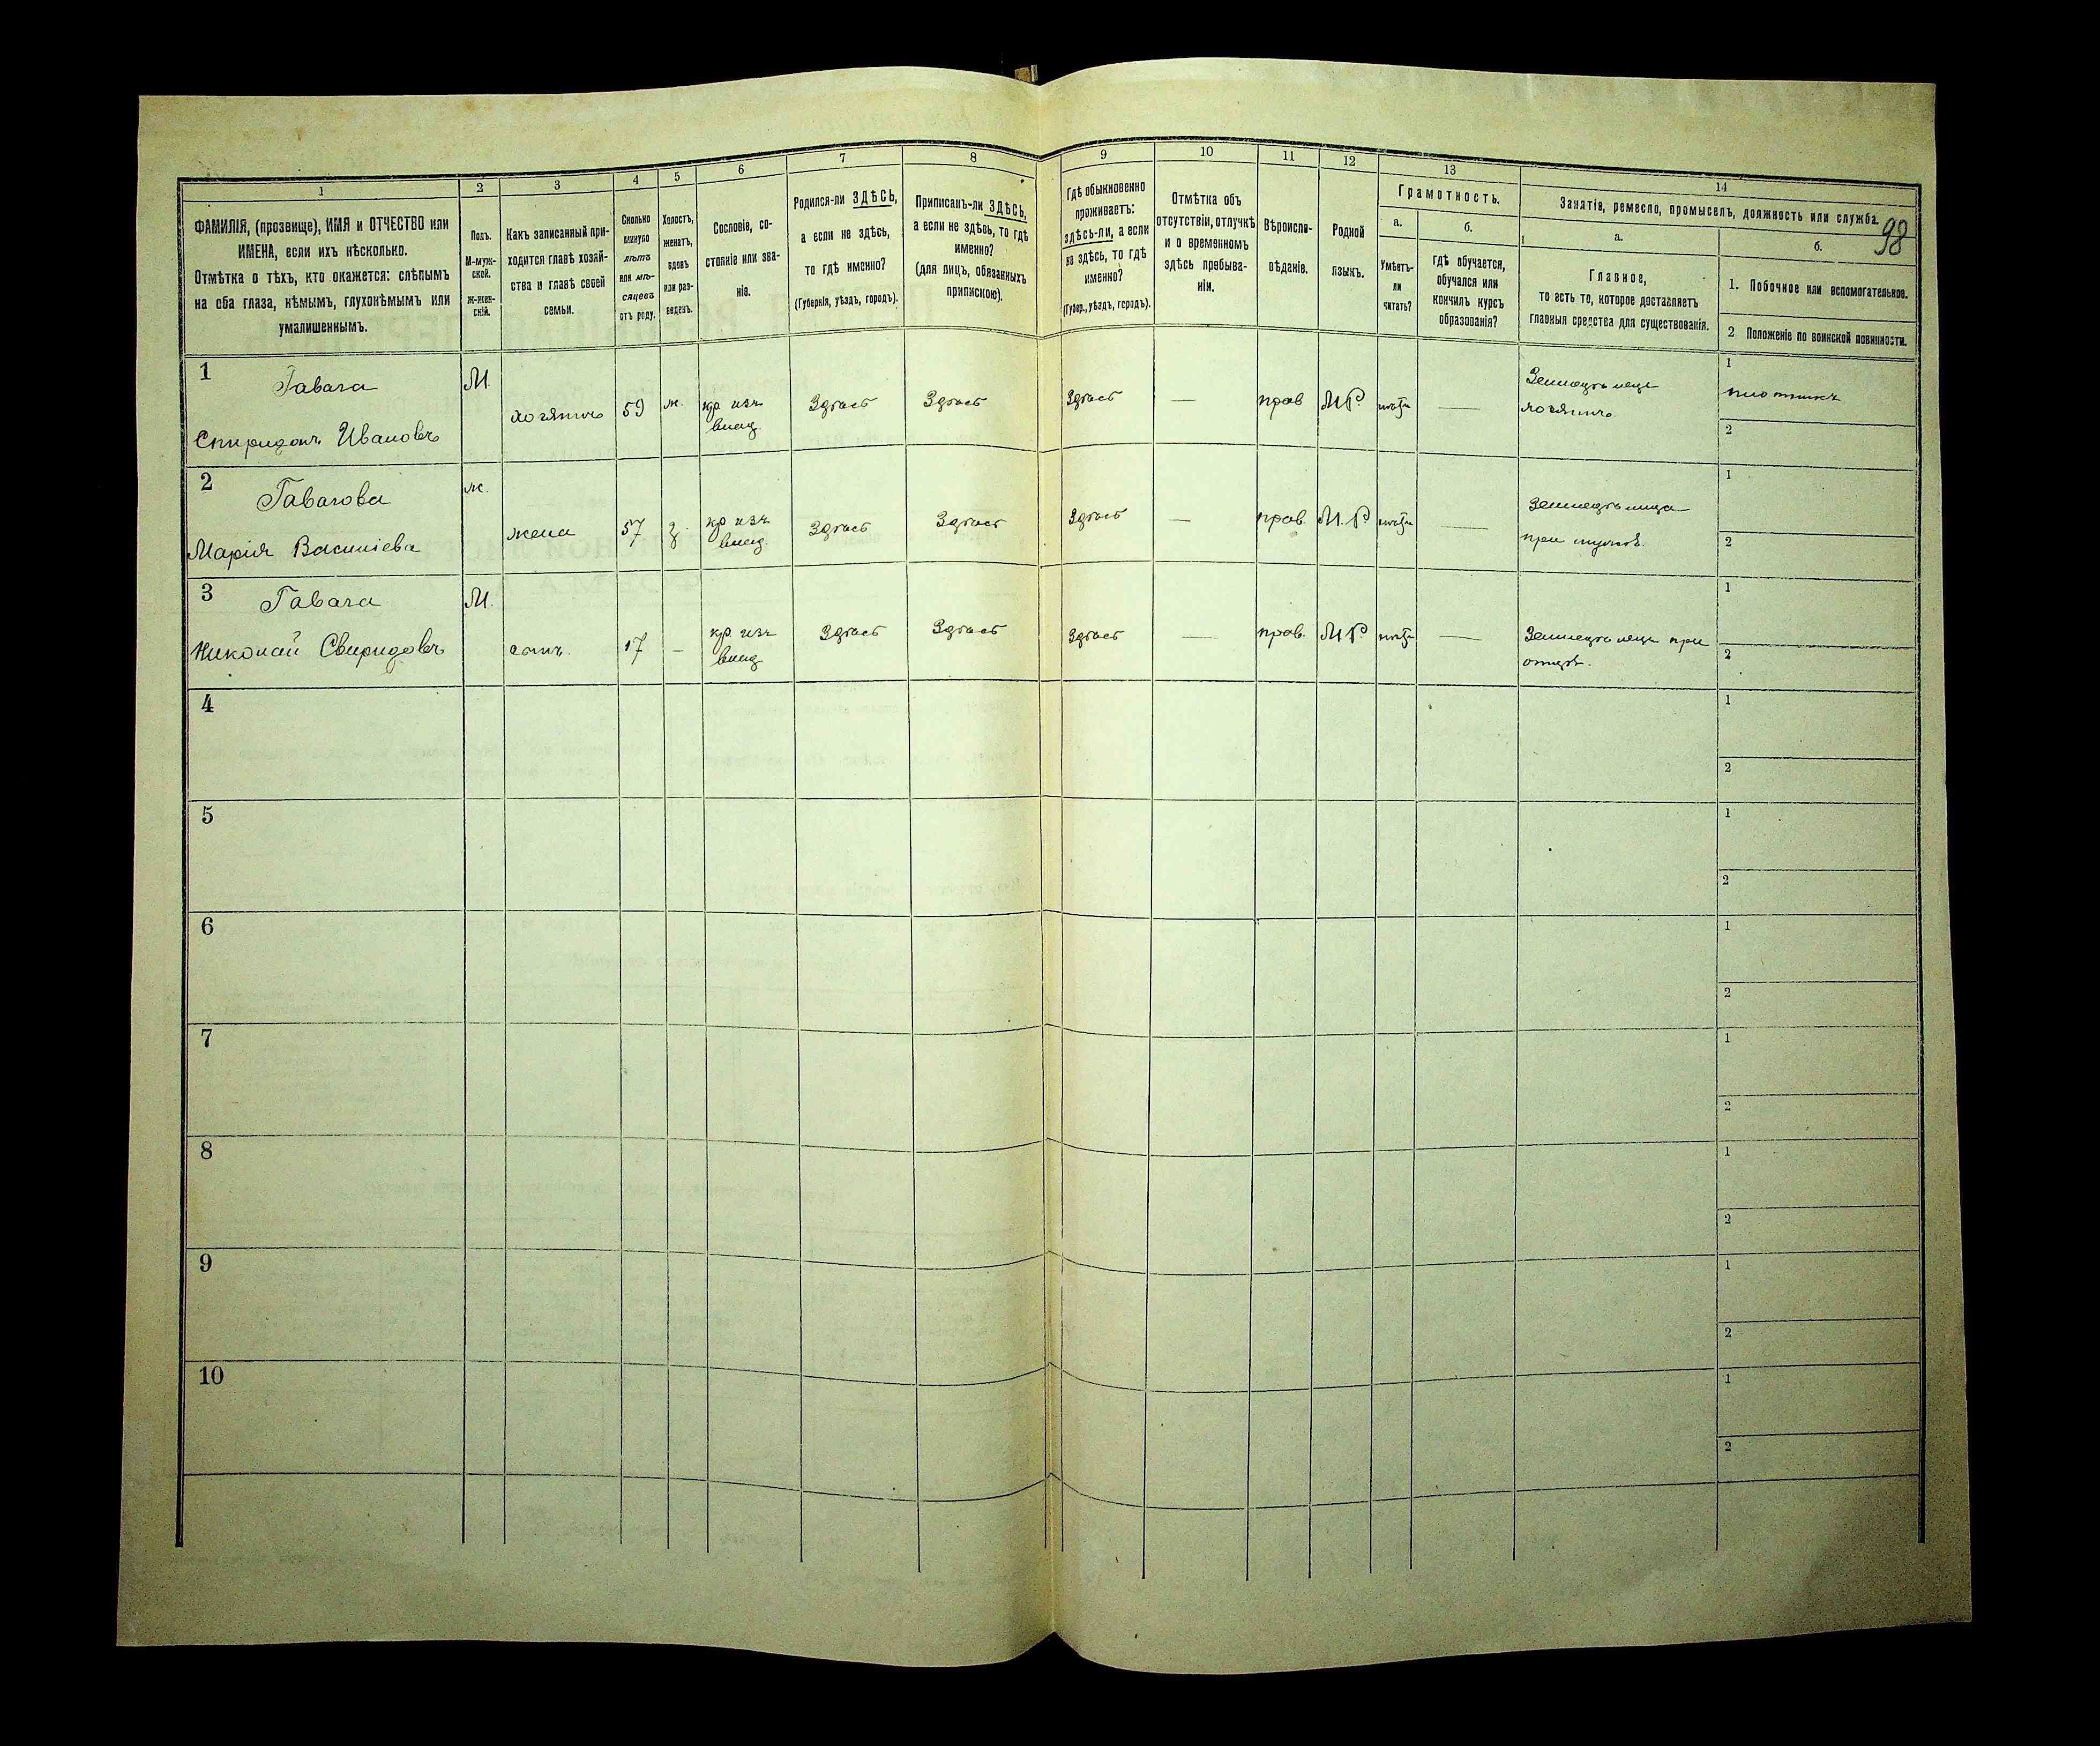 1
2
3
4
5
6
7
8
9
10
11
12
13
14
98
ФАМИЛІЯ, (прозвище), ИМЯ и ОТЧЕСТВО или
ИМЕНА, если ихъ нѣсколько.
Отмѣтка о тѣхъ, кто окажется: слѣпымъ
на оба глаза, нѣмымъ, глухонѣмымъ или
умалишеннымъ.
Полъ.
М-муж-
ской.
Ж-жен-
скій.
Какъ записанный при-
ходится главѣ хозяй-
ства и главѣ своей
семьи.
Сколько
минуло
лѣтъ
или мѣ-
сяцевъ
отъ роду.
Холостъ,
женатъ,
вдовъ
или раз-
веденъ.
Сословіе, со-
стояніе или зва-
ніе.
Родился-ли ЗДѢСЬ,
а если не здѣсь,
то гдѣ именно?
(Губернія, уѣздъ, городъ).
Приписанъ-ли ЗДѢСЬ,
а если не здѣсь, то гдѣ
именно?
(для лицъ, обязанныхъ
припискою).
Гдѣ обыкновенно
проживаетъ:
здѣсь-ли, а если
не здѣсь, то гдѣ
именно?
(Губер., уѣздъ, городъ).
Отмѣтка объ
отсутствіи, отлучкѣ
и о временномъ
здѣсь пребыва-
ніи.
Вѣроиспо-
вѣданіе.
Родной
языкъ.
Грамотность.
а.
Умѣетъ-
ли
читать?
б.
гдѣ обучается,
обучался или
кончилъ курсъ
образованія?
Занятія, ремесло, промыселъ, должность или служба.
а.
Главное,
то есть то, которое доставляетъ
главныя средства для существованія.
б.
1. Побочное или вспомогательное.
2 Положеніе по воинской повинности.
1
Гавага
Спиридонъ Ивановъ
М.
хозяинъ
59
ж.
кр изъ
влад.
Здѣсь
Здѣсь
Здѣсь
—
прав
М Р.
—
Земледѣлецъ
хозяинъ
1
плотникъ
2
2
Гавагова
Марія Василіева
ж.
жена
57
з.
кр изъ
влад.
Здѣсь
Здѣсь
Здѣсь
—
прав.
М. Р
—
Земледѣлица
при мужѣ.
1
2
3
Гавага
Николай Свиридовъ
М.
сынъ.
17
—
кр изъ
влад
Здѣсь
Здѣсь
Здѣсь
—
прав.
М Р
—
Земледѣлецъ при
отцѣ.
1
2
4
1
2
5
1
2
6
1
2
7
1
2
8
1
2
9
1
2
10
1
2